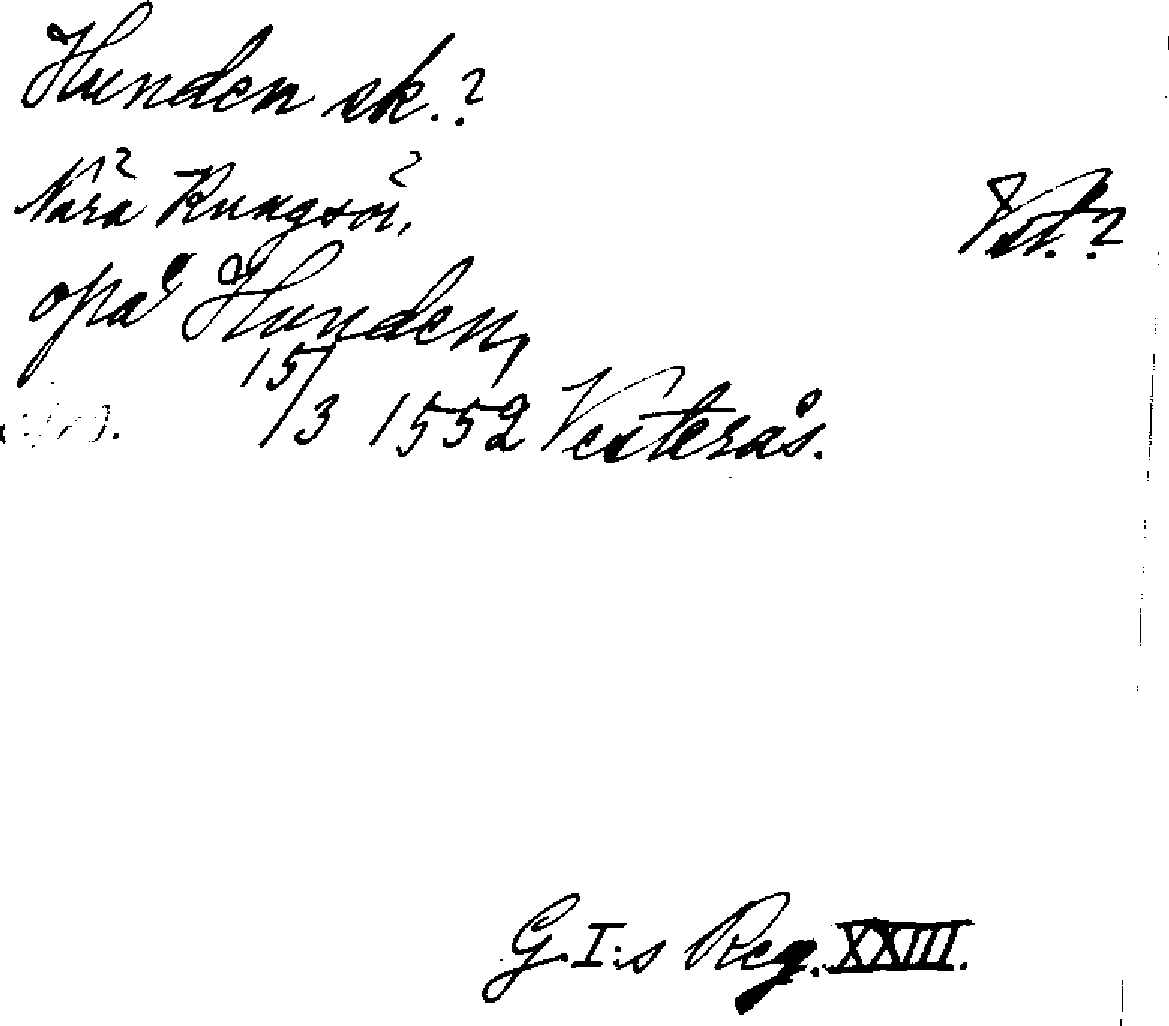 Hunden sk.?
Nära Kungsör,
Vstm.?
opå Hunden,
15/3 1552 Vesterås.
G.I:s Reg. XXIII.